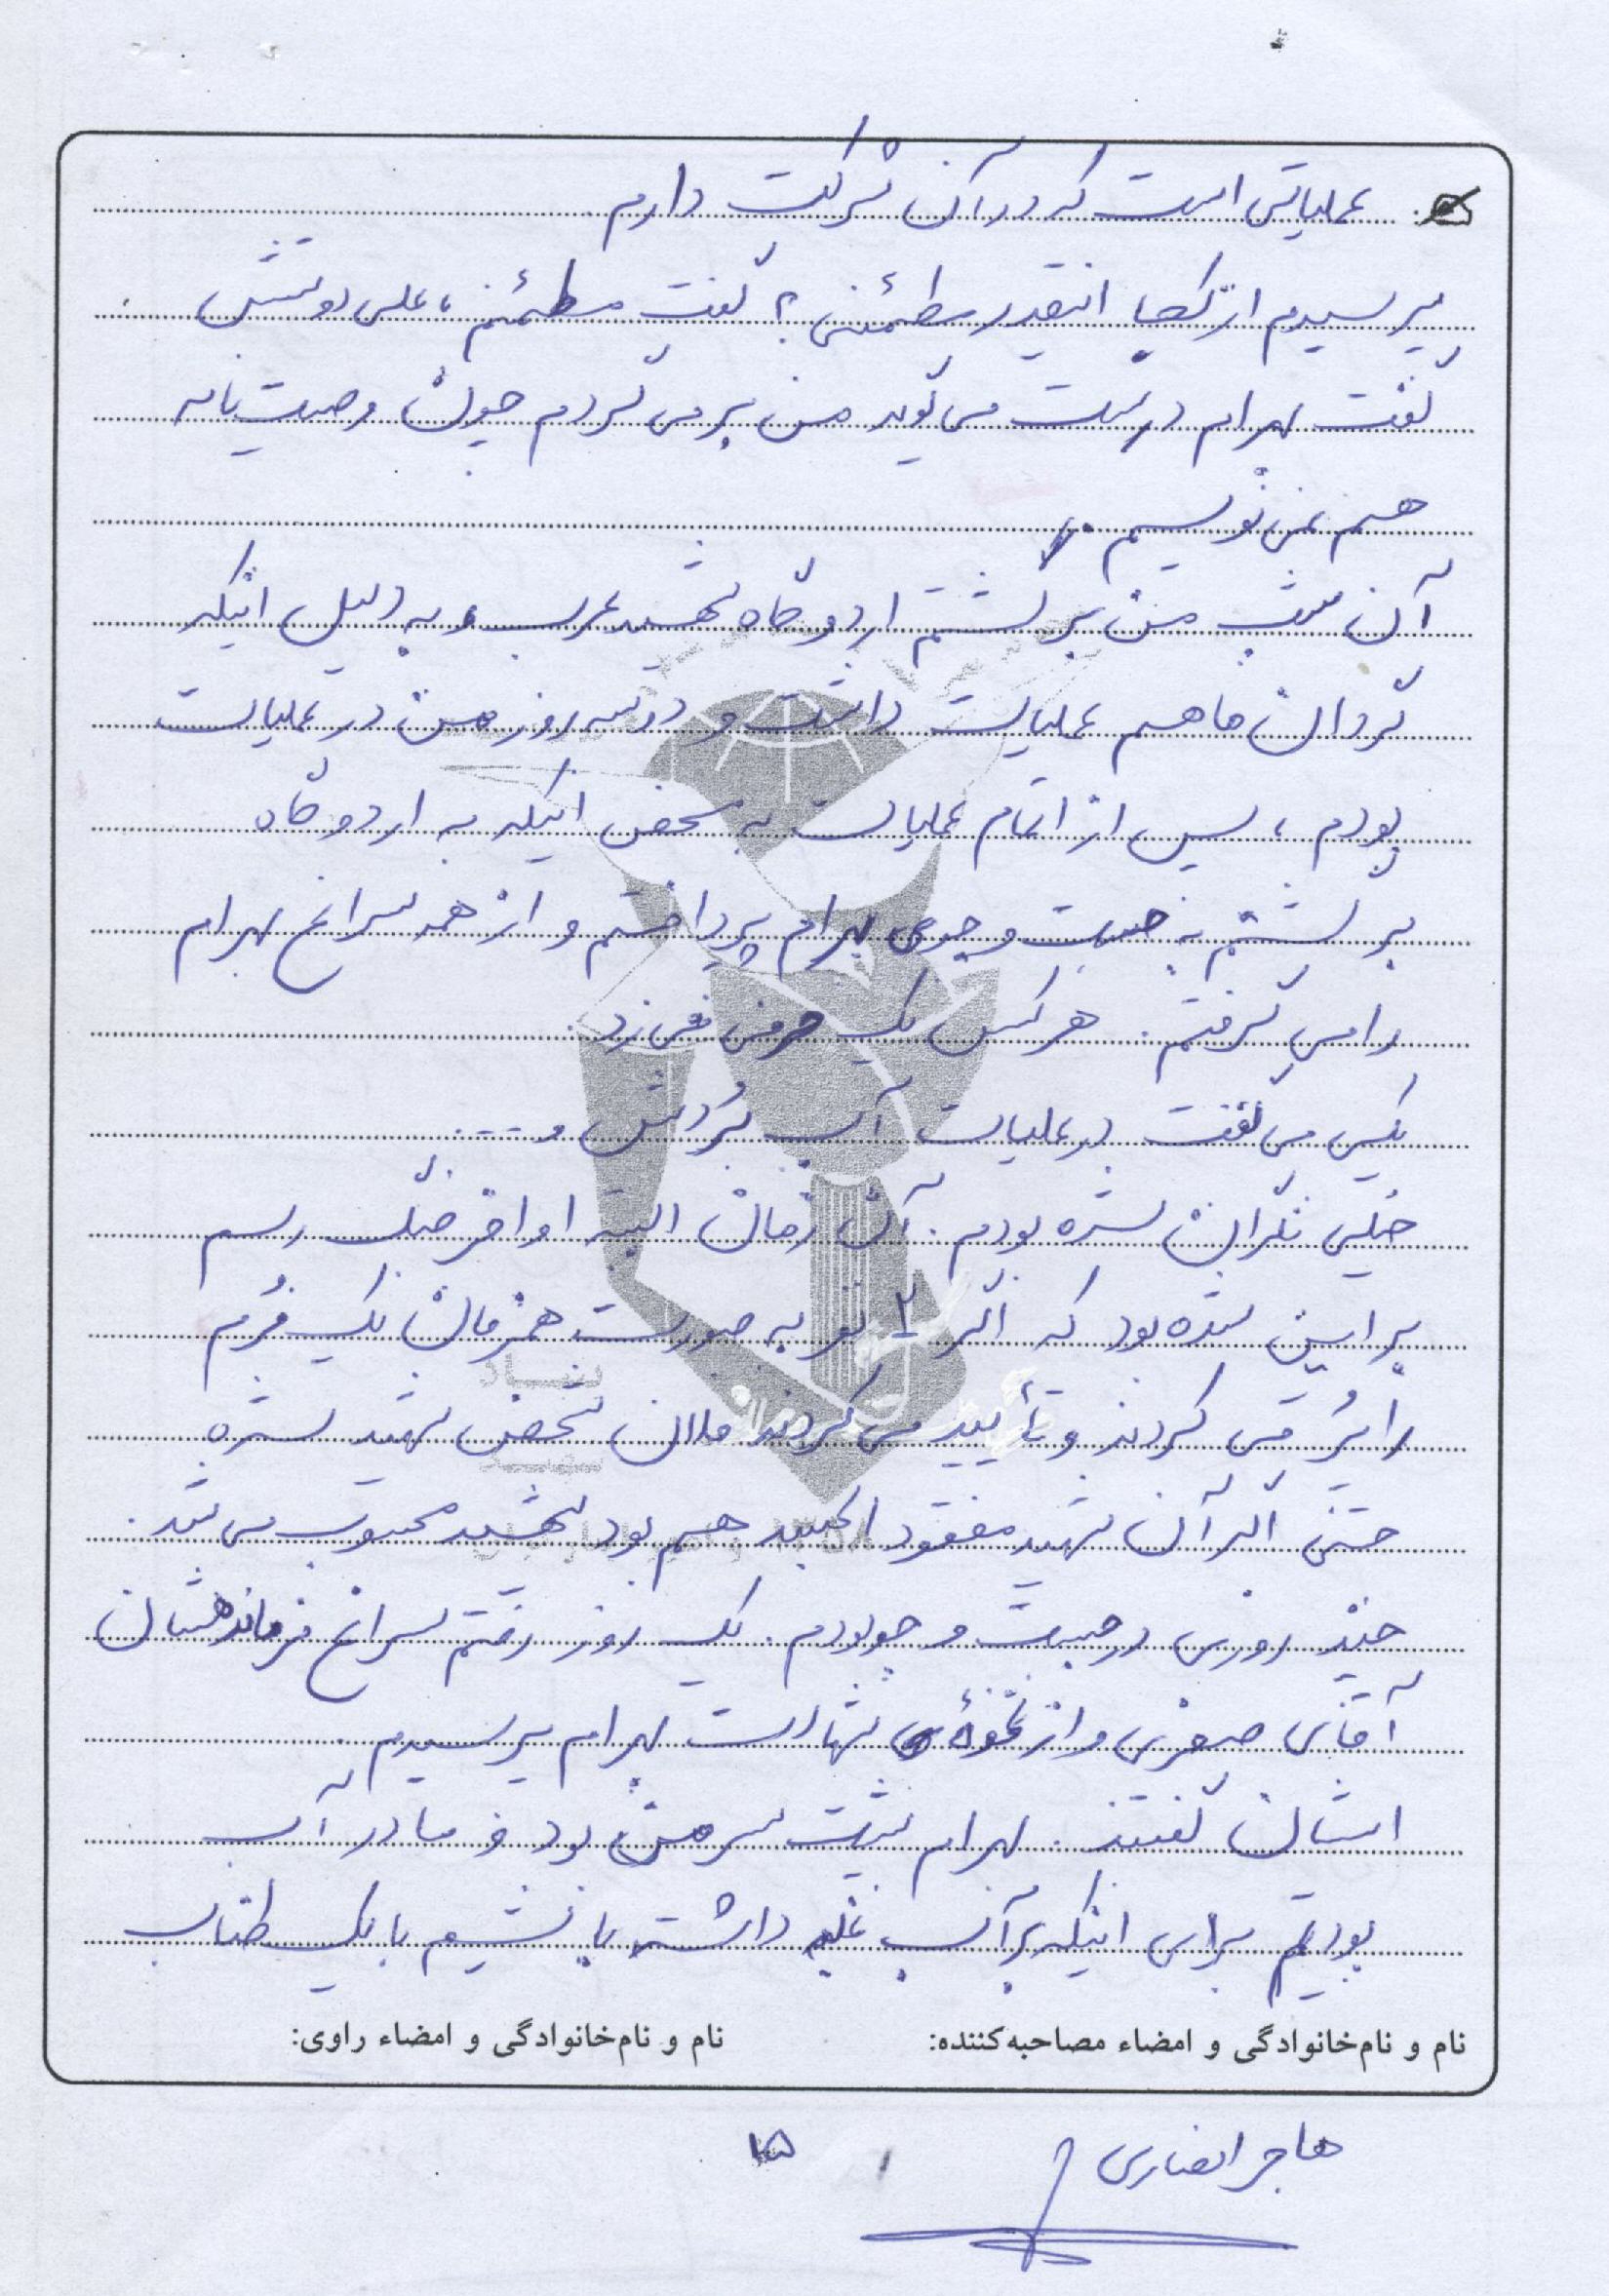 عملیاتی است که در آن شرکت دارم
پرسیدم از کجا انقدر مطمئنی؟ گفت مطمئنم، علی دوستش
گفت بهرام درست می گوید من برمی گردم چون وصیت نامه
هم نمی نویسم.
آن شب من برگشتم اردوگاه شهید عرب و به دلیل اینکه
گردان ما هم عملیات داشت و دو سه روز من در عملیات
بودم، پس از اتمام عملیات به محض اینکه به اردوگاه
برگشتم به جست و جوی بهرام پرداختم و از همه سراغ بهرام
را می گرفتم. هر کس یک حرفی می زد.
یکی می گفت در عملیات آب بُردش و ....
خیلی نگران شده بودم. آن زمان البته اواخر جنگ رسم
بر این شده بود که اگر ۲ نفر به صورت همزمان یک فُرم
را پُر می کردند و تأیید می کردند فلان شخص شهید شده
حتی اگر آن شهید مفقود الجسد هم بود شهید محسوب می شد.
چند روزی در جست و جو بودم. یک روز رفتم سراغ فرماندهشان
آقای صفری و از نحوۀ شهادت بهرام پرسیدم.
ایشان گفتند. بهرام پشت سر من بود و ما در آب
بودیم برای اینکه بر آب غلبه داشته باشیم با یک طناب
نام و نام‌خانوادگی و امضاء مصاحبه‌کننده: نام و نام‌خانوادگی و امضاء راوی:
هاجر انصاری
۱۵